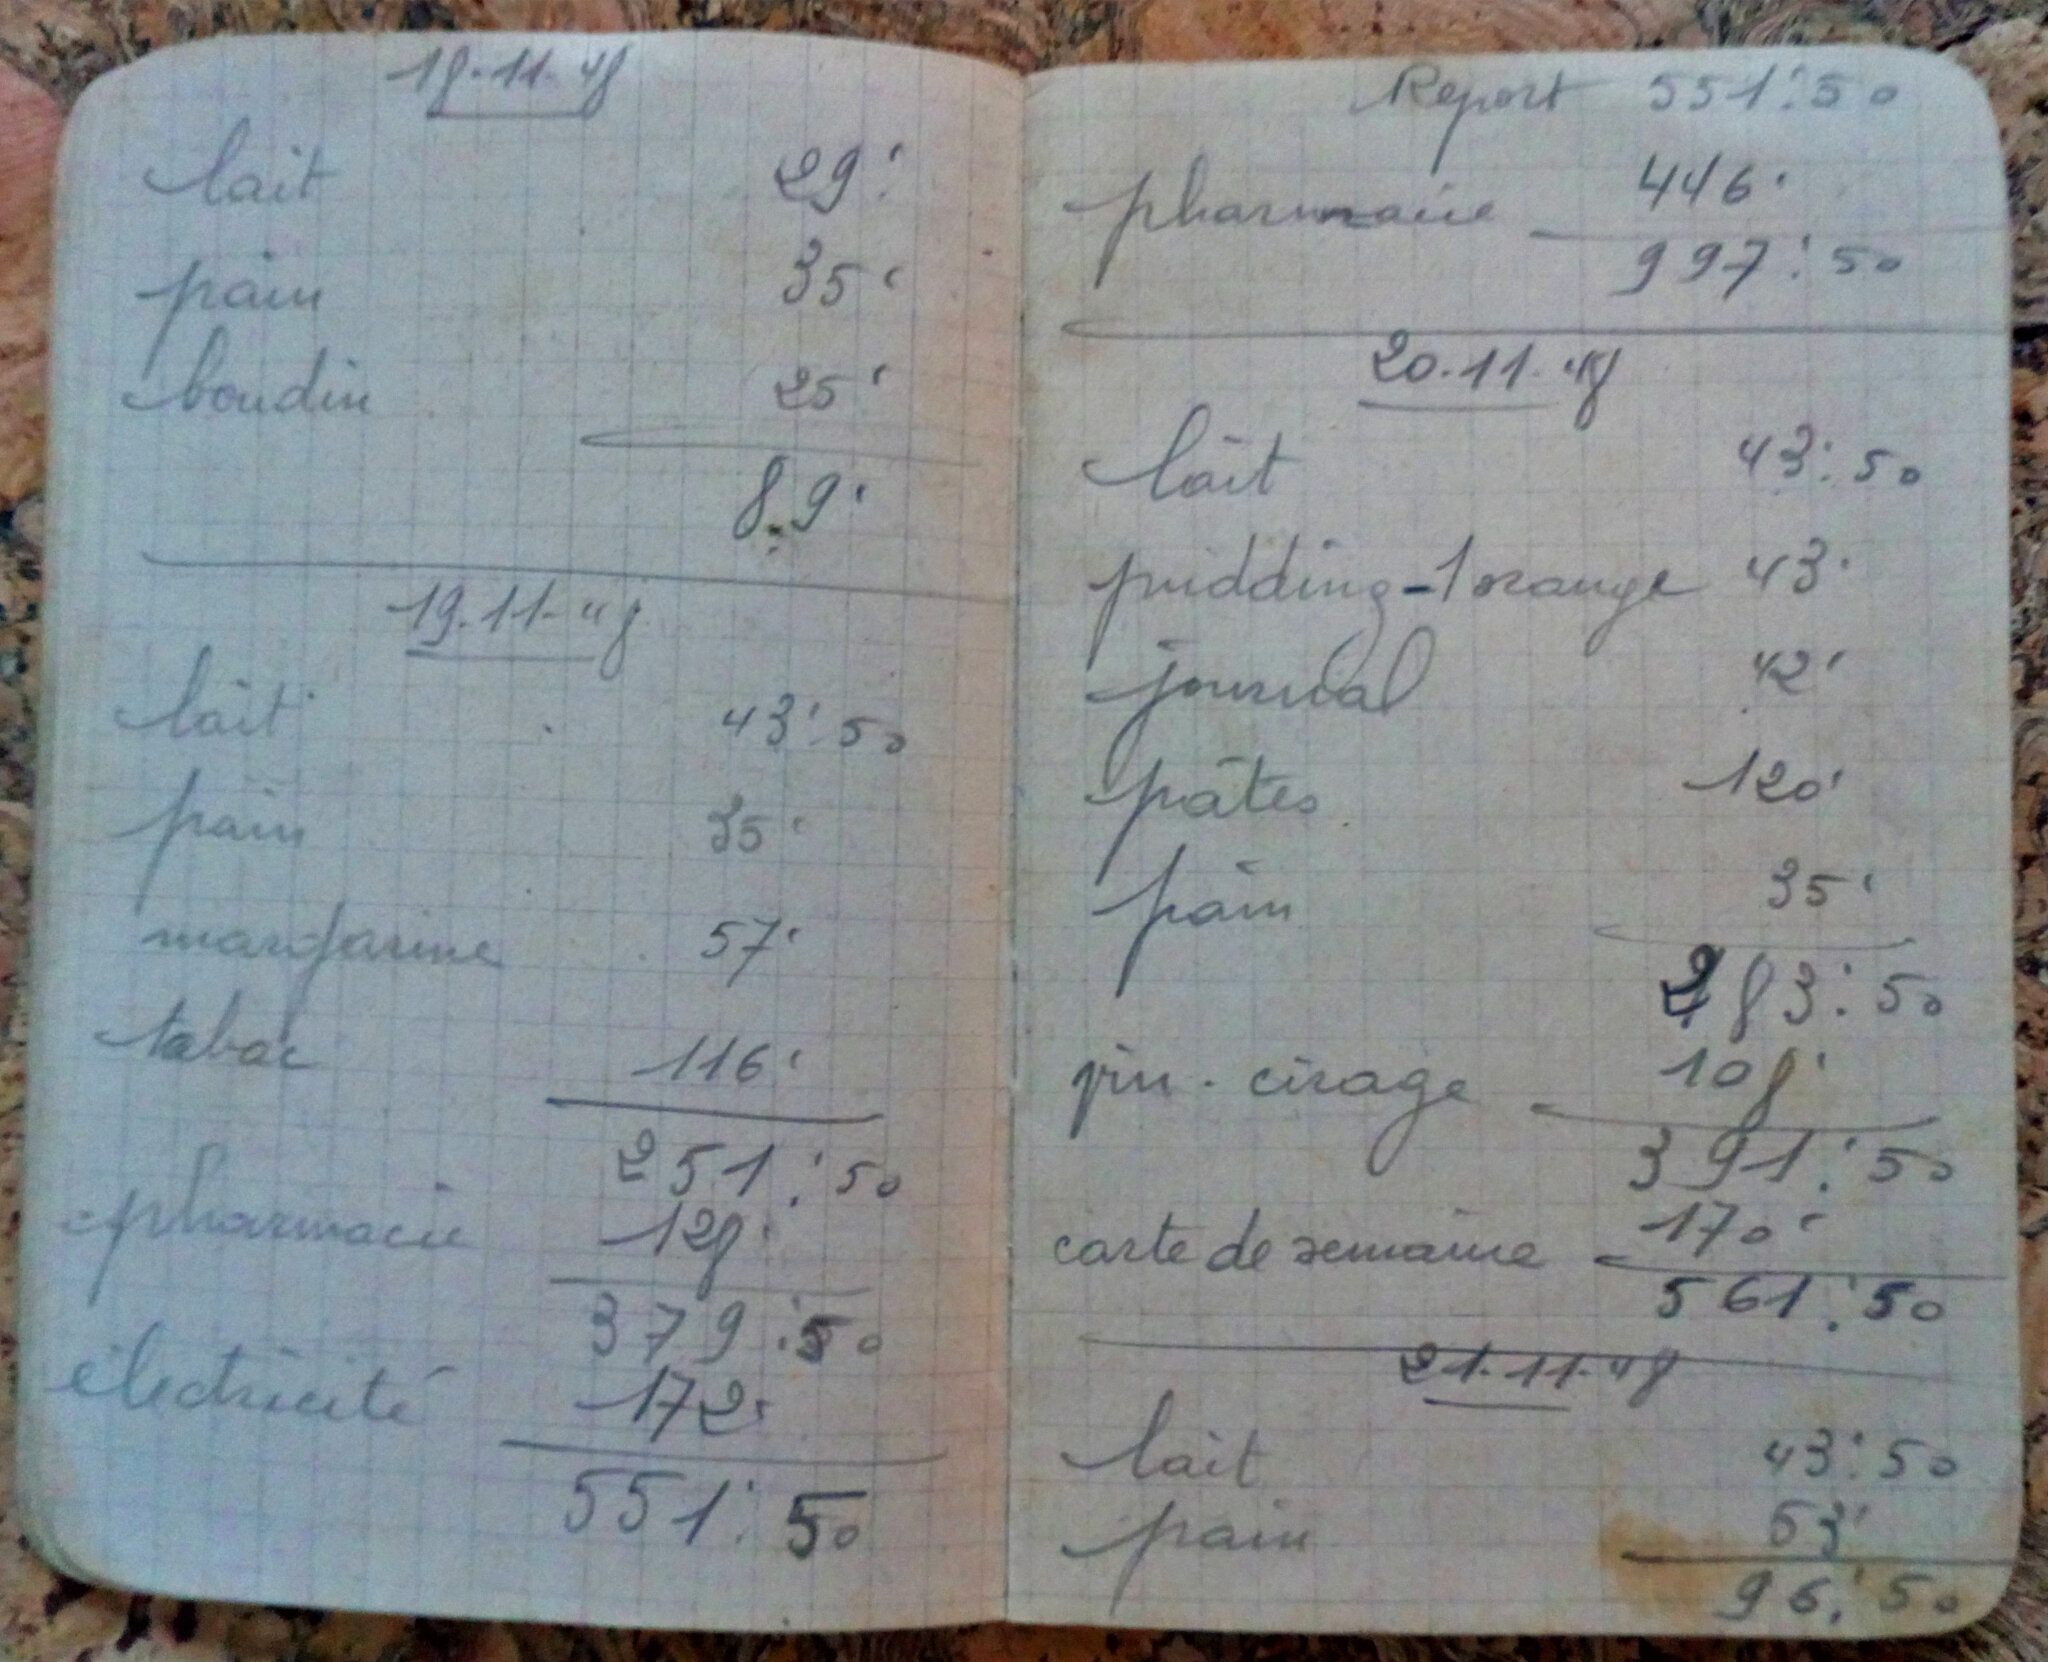 18.11.48
lait 29'
pain 35'
boudin 25'
89'
19.11.48
lait 43:50
pain 35'
margarine 57'
tabac 116'
251:50
pharmacie 128'
379:50
électricité 172'
551:50
Report 551:50
pharmacie 446'
997:50
20.11.48
lait 43:50
pudding-1 orange 43'
journal 42'
pâtes 120'
pain 35'
283:50
vin . cirage 108'
391:50
carte de semaine 170'
561:50
21.11.48
lait 43:50
pain 53'
96:50